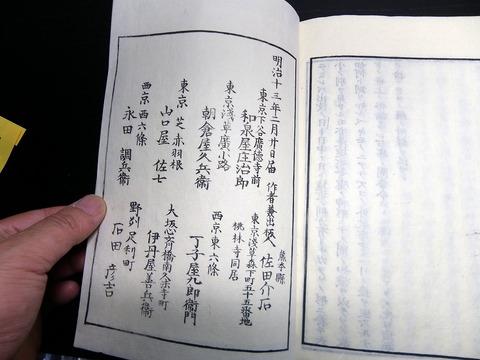 明治十三年二月廿日届
作者兼出板人
熊本縣
佐田介石
東京淺草森下町五十五番地
桃林寺同居
東京下谷廣德寺前
和泉屋庄治郎
東京淺草廣小路
朝倉屋久兵衛
西京東六條
丁子屋九郎衛門
東京芝赤羽根
山口屋佐七
大坂心斉橋南久宝寺町
伊丹屋善兵衛
西京西六條
永田調兵衛
野刕足利町
石田彦吉